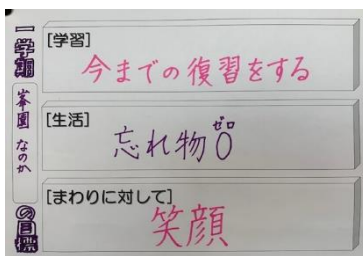 一学期
峯園 なのか
の目標
[学習]
今までの復習をする
[生活]
忘れ物0
ゼロ
[まわりに対して]
笑顔